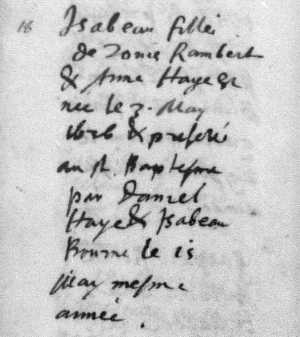 18 Isabeau fille
de Tonie Rambert
& Anne Hayes est
née le 3. May
1616 & presenté
au St. Baptesme
par Daniel
Haye & Isabeau
Bourne le 15
may mesme
année.